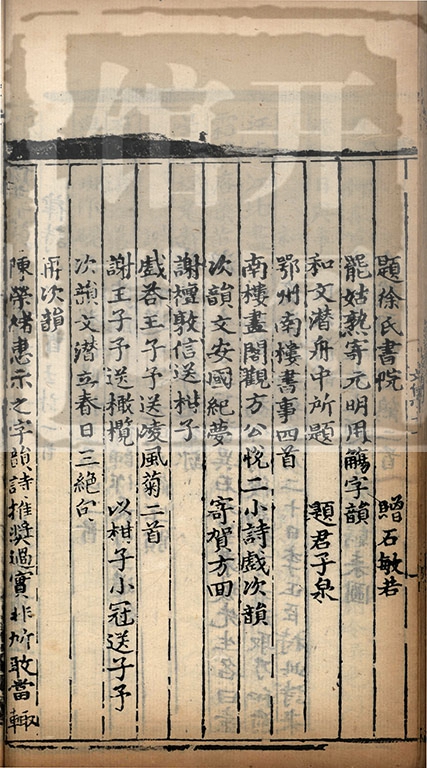 題徐氏書院　贈石敏若
罷姑熟寄元明用觴字韻
和文潛舟中所題　題君子泉
鄂州南樓書事四首
南樓畫閣觀方公悅二小詩戲次韻
次韻文安國紀夢　寄賀方回
謝檀敦信送柑子
戲荅王子予送凌風菊二首
謝王子予送橄欖　以柑子小冠送子予
次韻文潛立春日三絕句
再次韻
陳榮緒惠示之字韻詩推奬過實非所敢當輒